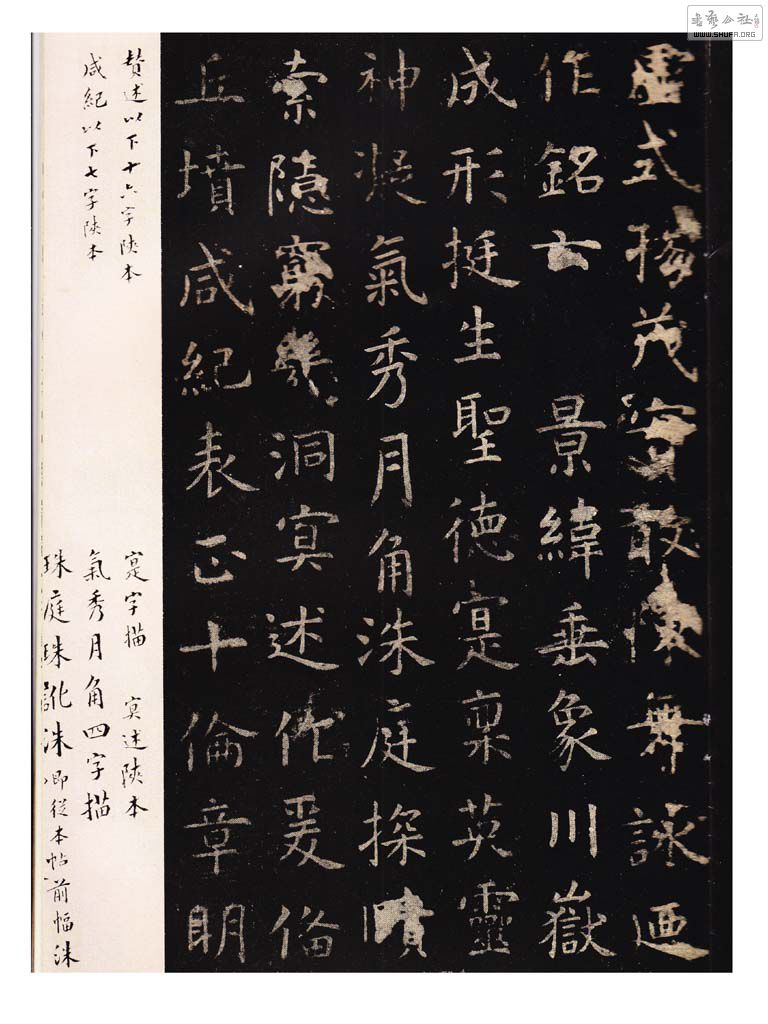 書藝公社
WWW.SHUFA.ORG
虛式揚茂實敢陳舞詠迺
作銘云 景緯垂象川嶽
成形挺生聖德寔稟英靈
神凝氣秀月角洙庭探賾
索隱窮幾洞冥述作爰俻
丘墳咸紀表正十倫章明
賛述以下十六字陝本
寔字描 冥述陝本
咸紀以下七字陝本
氣秀月角四字描
珠庭珠訛洙 即從本帖前幅洙